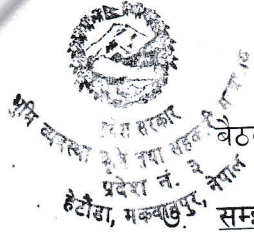 प्रदेश सरकार
भूमि व्यवस्था कृषि तथा सहकारी
प्रदेश नं. ३
हेटौंडा, मकवानपुर, नेपाल
बैठ
सम्झ